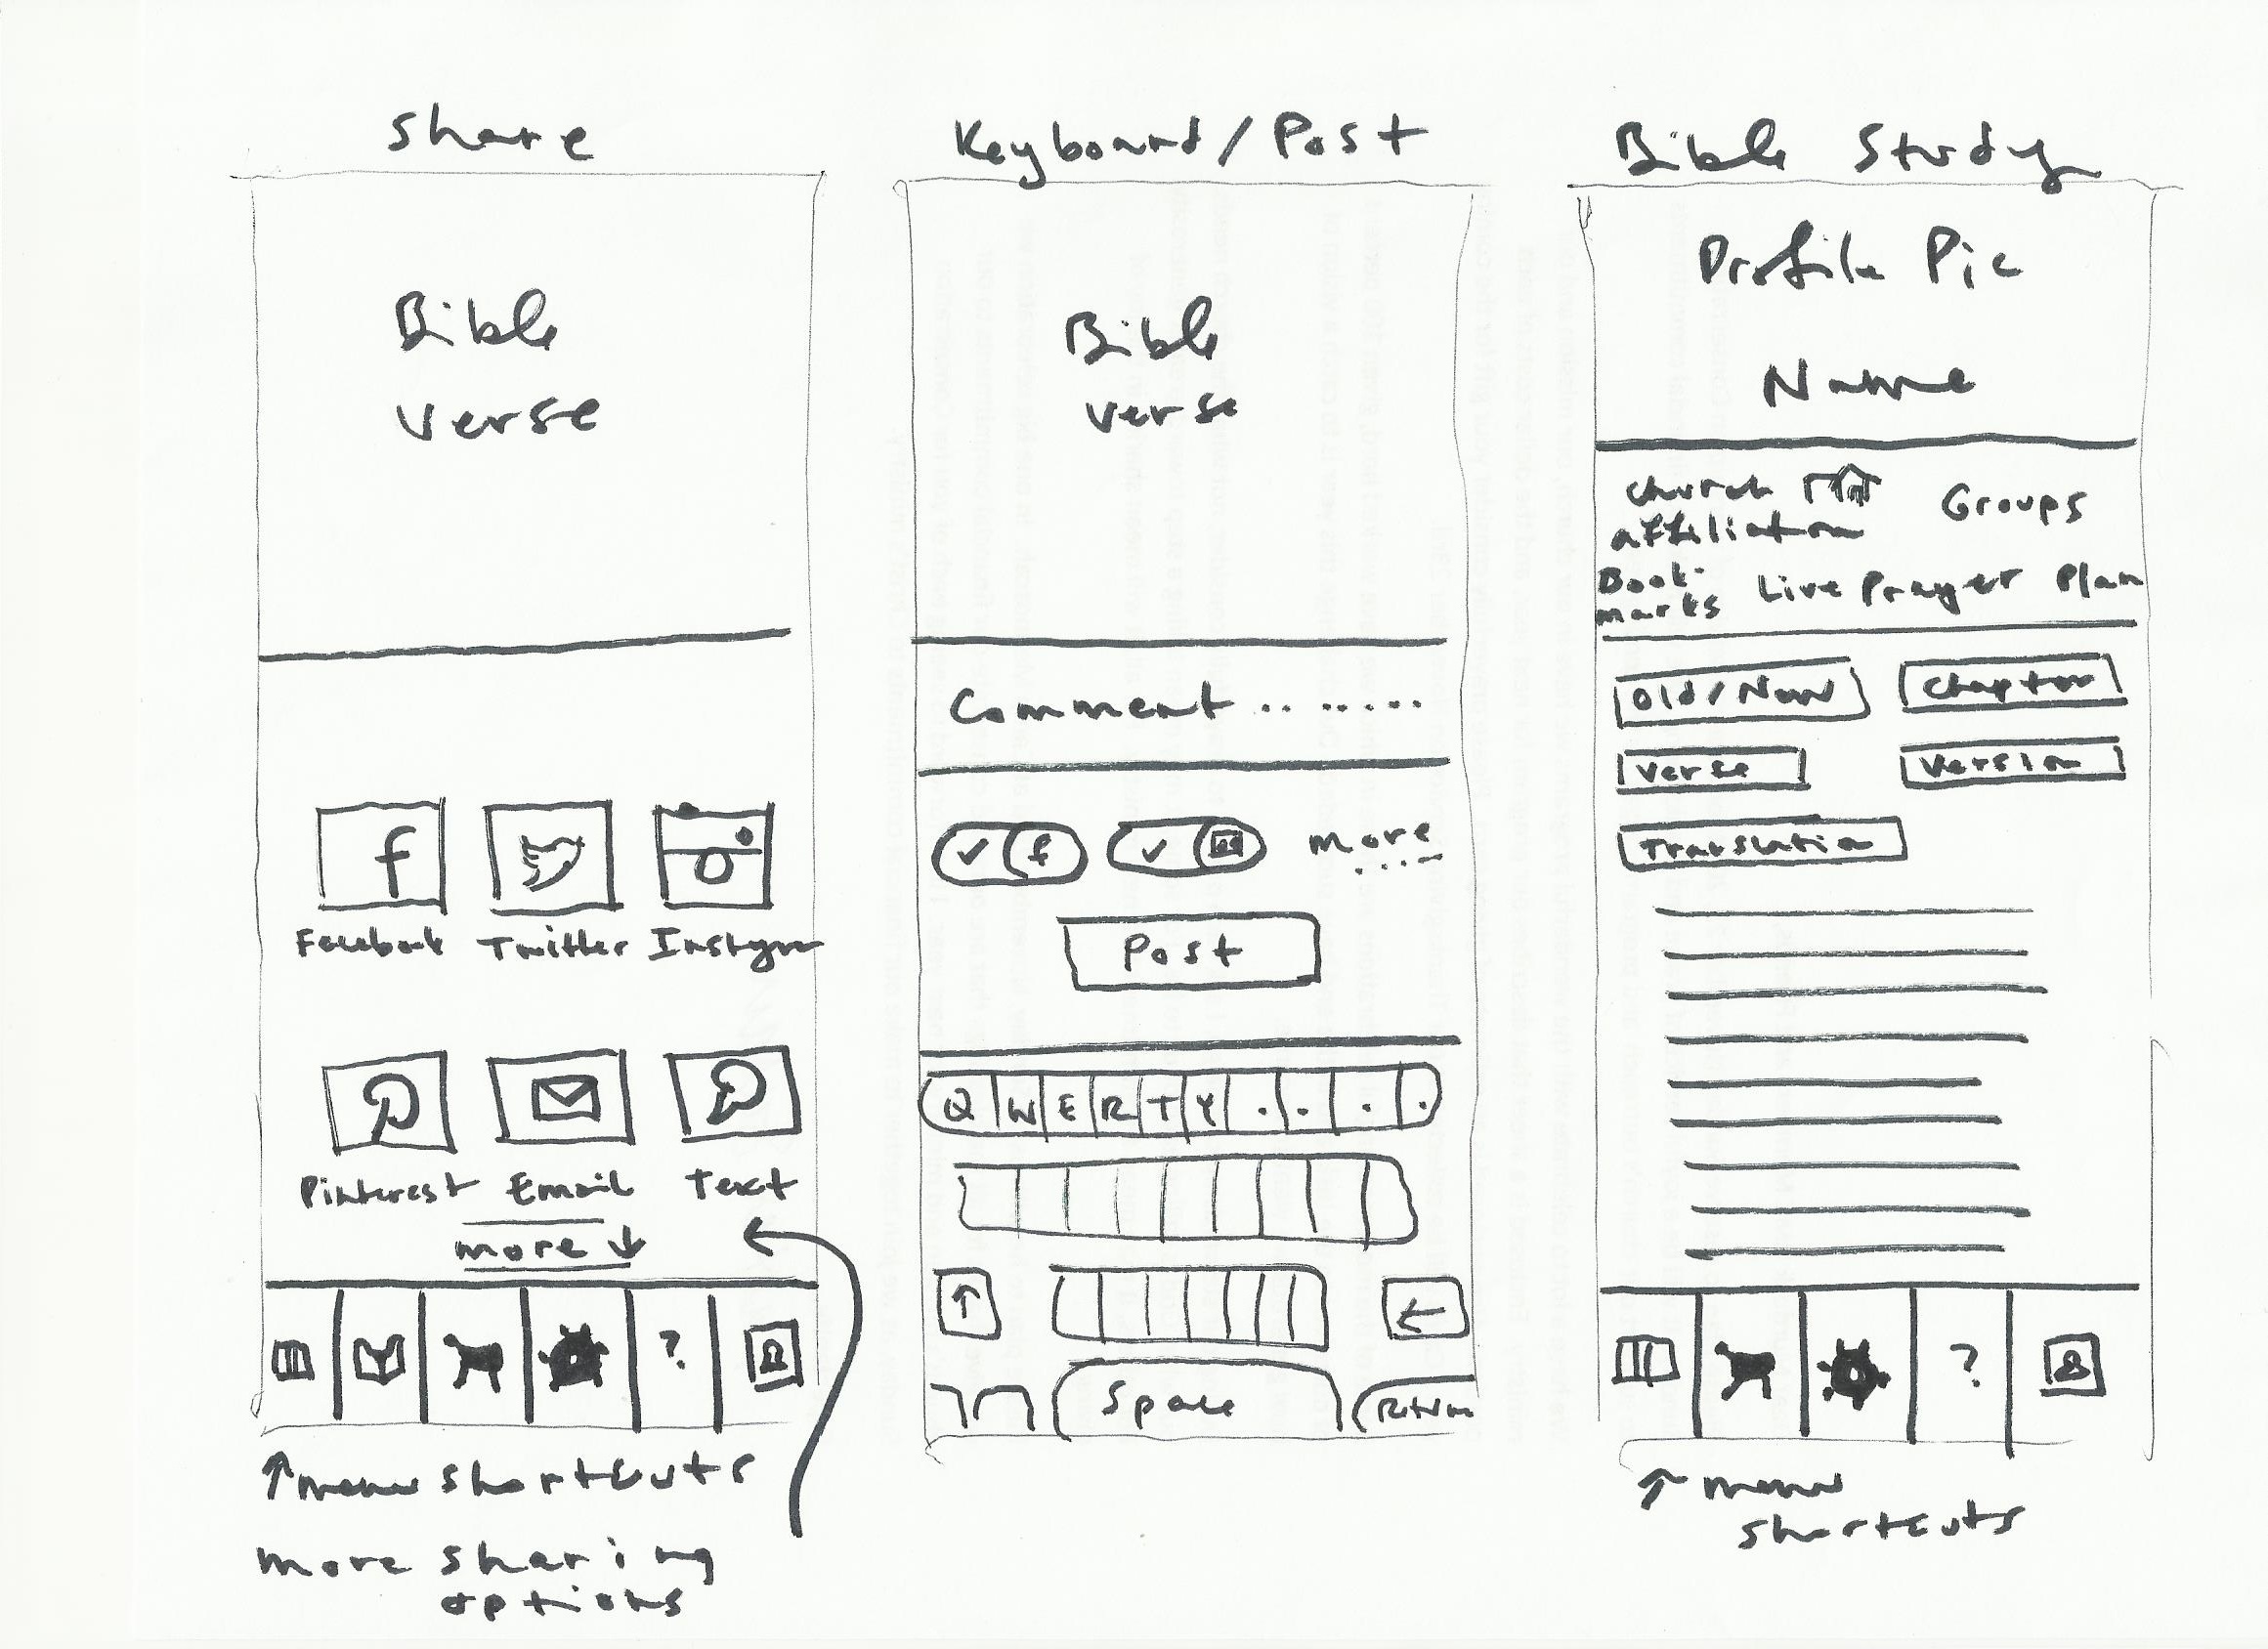 Share
Bible
Verse
f
Facebook Twitter Instagram
Pinterest Email Text
more ↓
?
↑ menu shortcuts
more sharing
options
Keyboard / Post
Bible
Verse
Comment .. .. ....
✓ f ✓ more
....
Post
Q W E R T Y . . . .
↑ ←
Space Return
Bible Study
Profile Pic
Name
Church
affiliation
Groups
Book-
marks Live Prayer Plan
Old/New Chapter
Verse Version
Translation
?
↑ menu
shortcuts